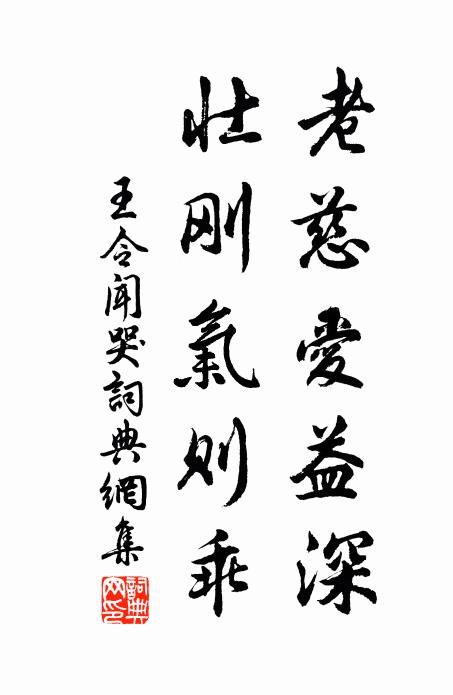 老慈愛益深
壯剛氣則乖
王令聞哭詞典網集
詞典網印